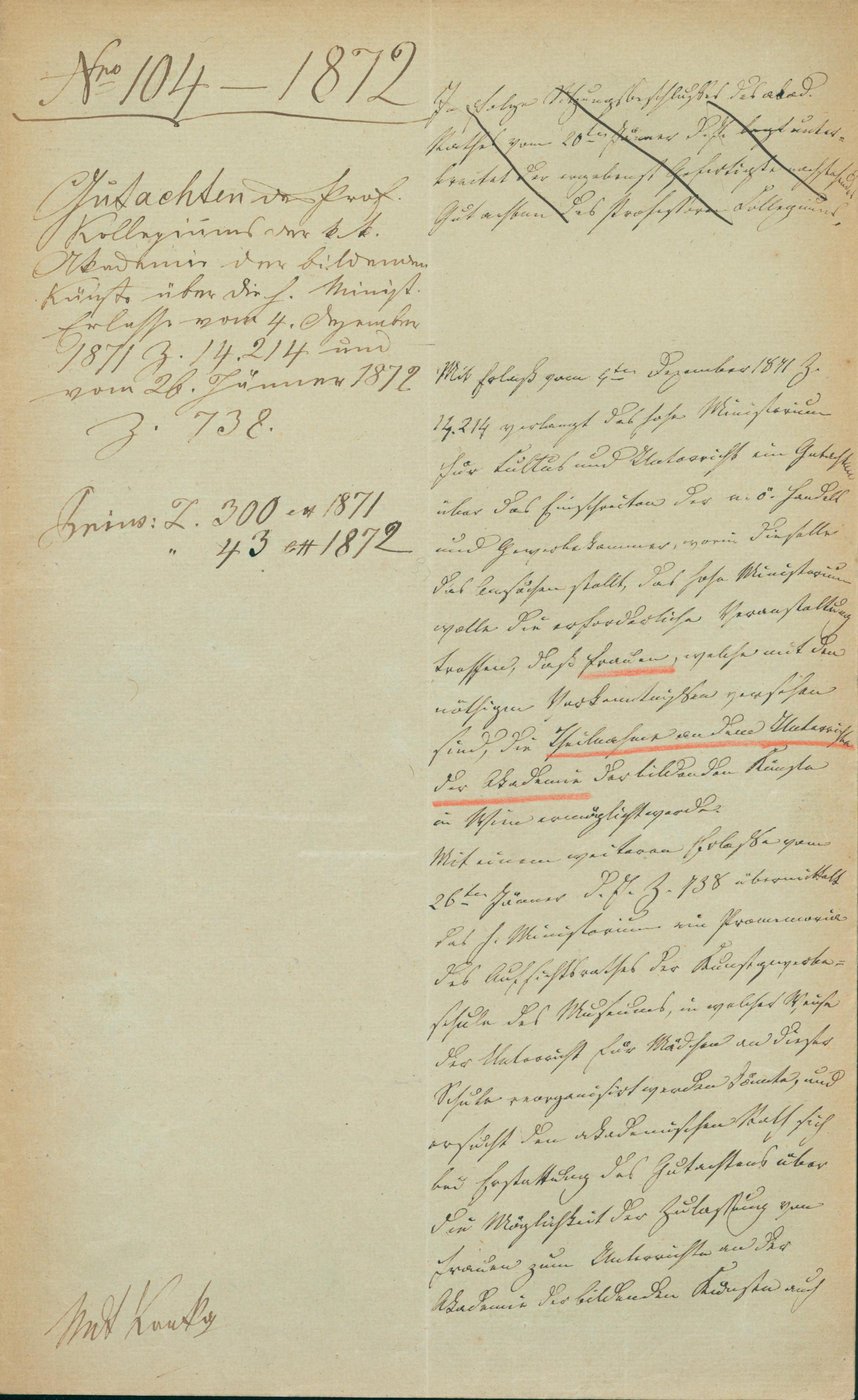 Nro 104 – 1872
Gutachten des Prof.
Kollegiums der k. k.
Akademie der bildenden
Künste über die h. Minist.
Erlässe vom 4. Dezember
1871 Z. 14.214 und
vom 26. Jänner 1872
Z. 738.
Z. 300 ex 1871
" 43 ex 1872
In Folge Sitzungsbeschlußes des akad.
Rathes vom 20ten Jänner d. J. unter-
breitet der ergebenst Gefertigte nachstehendes
Gutachten des Professoren Collegiums.
Mit Erlaß vom 4ten Dezember 1871 Z.
14.214 verlangt das hohe Ministerium
für Cultus und Unterricht ein Gutachten
über das Einschreiten der n. ö. Handels
und Gewerbekammer, worin dieselbe
das Ansuchen stellt, das hohe Ministerium
wolle die erforderliche Veranstaltung
treffen, daß Frauen, welche mit den
nöthigen Vorkenntnißen versehen
sind, die Theilnahme an dem Unterrichte
der Akademie der bildenden Künste
in Wien ermöglicht werde.
Mit einem weiteren Erlaße vom
26ten Jänner d. J. Z. 738 übermittelt
das h. Ministerium ein Promemoria
des Aufsichtsrathes der Kunstgewerbe-
schule des Museums, in welcher Weise
der Unterricht für Mädchen an dieser
Schule reorganisirt werden könnte, und
ersucht den akademischen Rath sich
bei Erstattung des Gutachtens über
die Möglichkeit der Zulaßung von
Frauen zum Unterrichte an der
Akademie der bildenden Künste auch